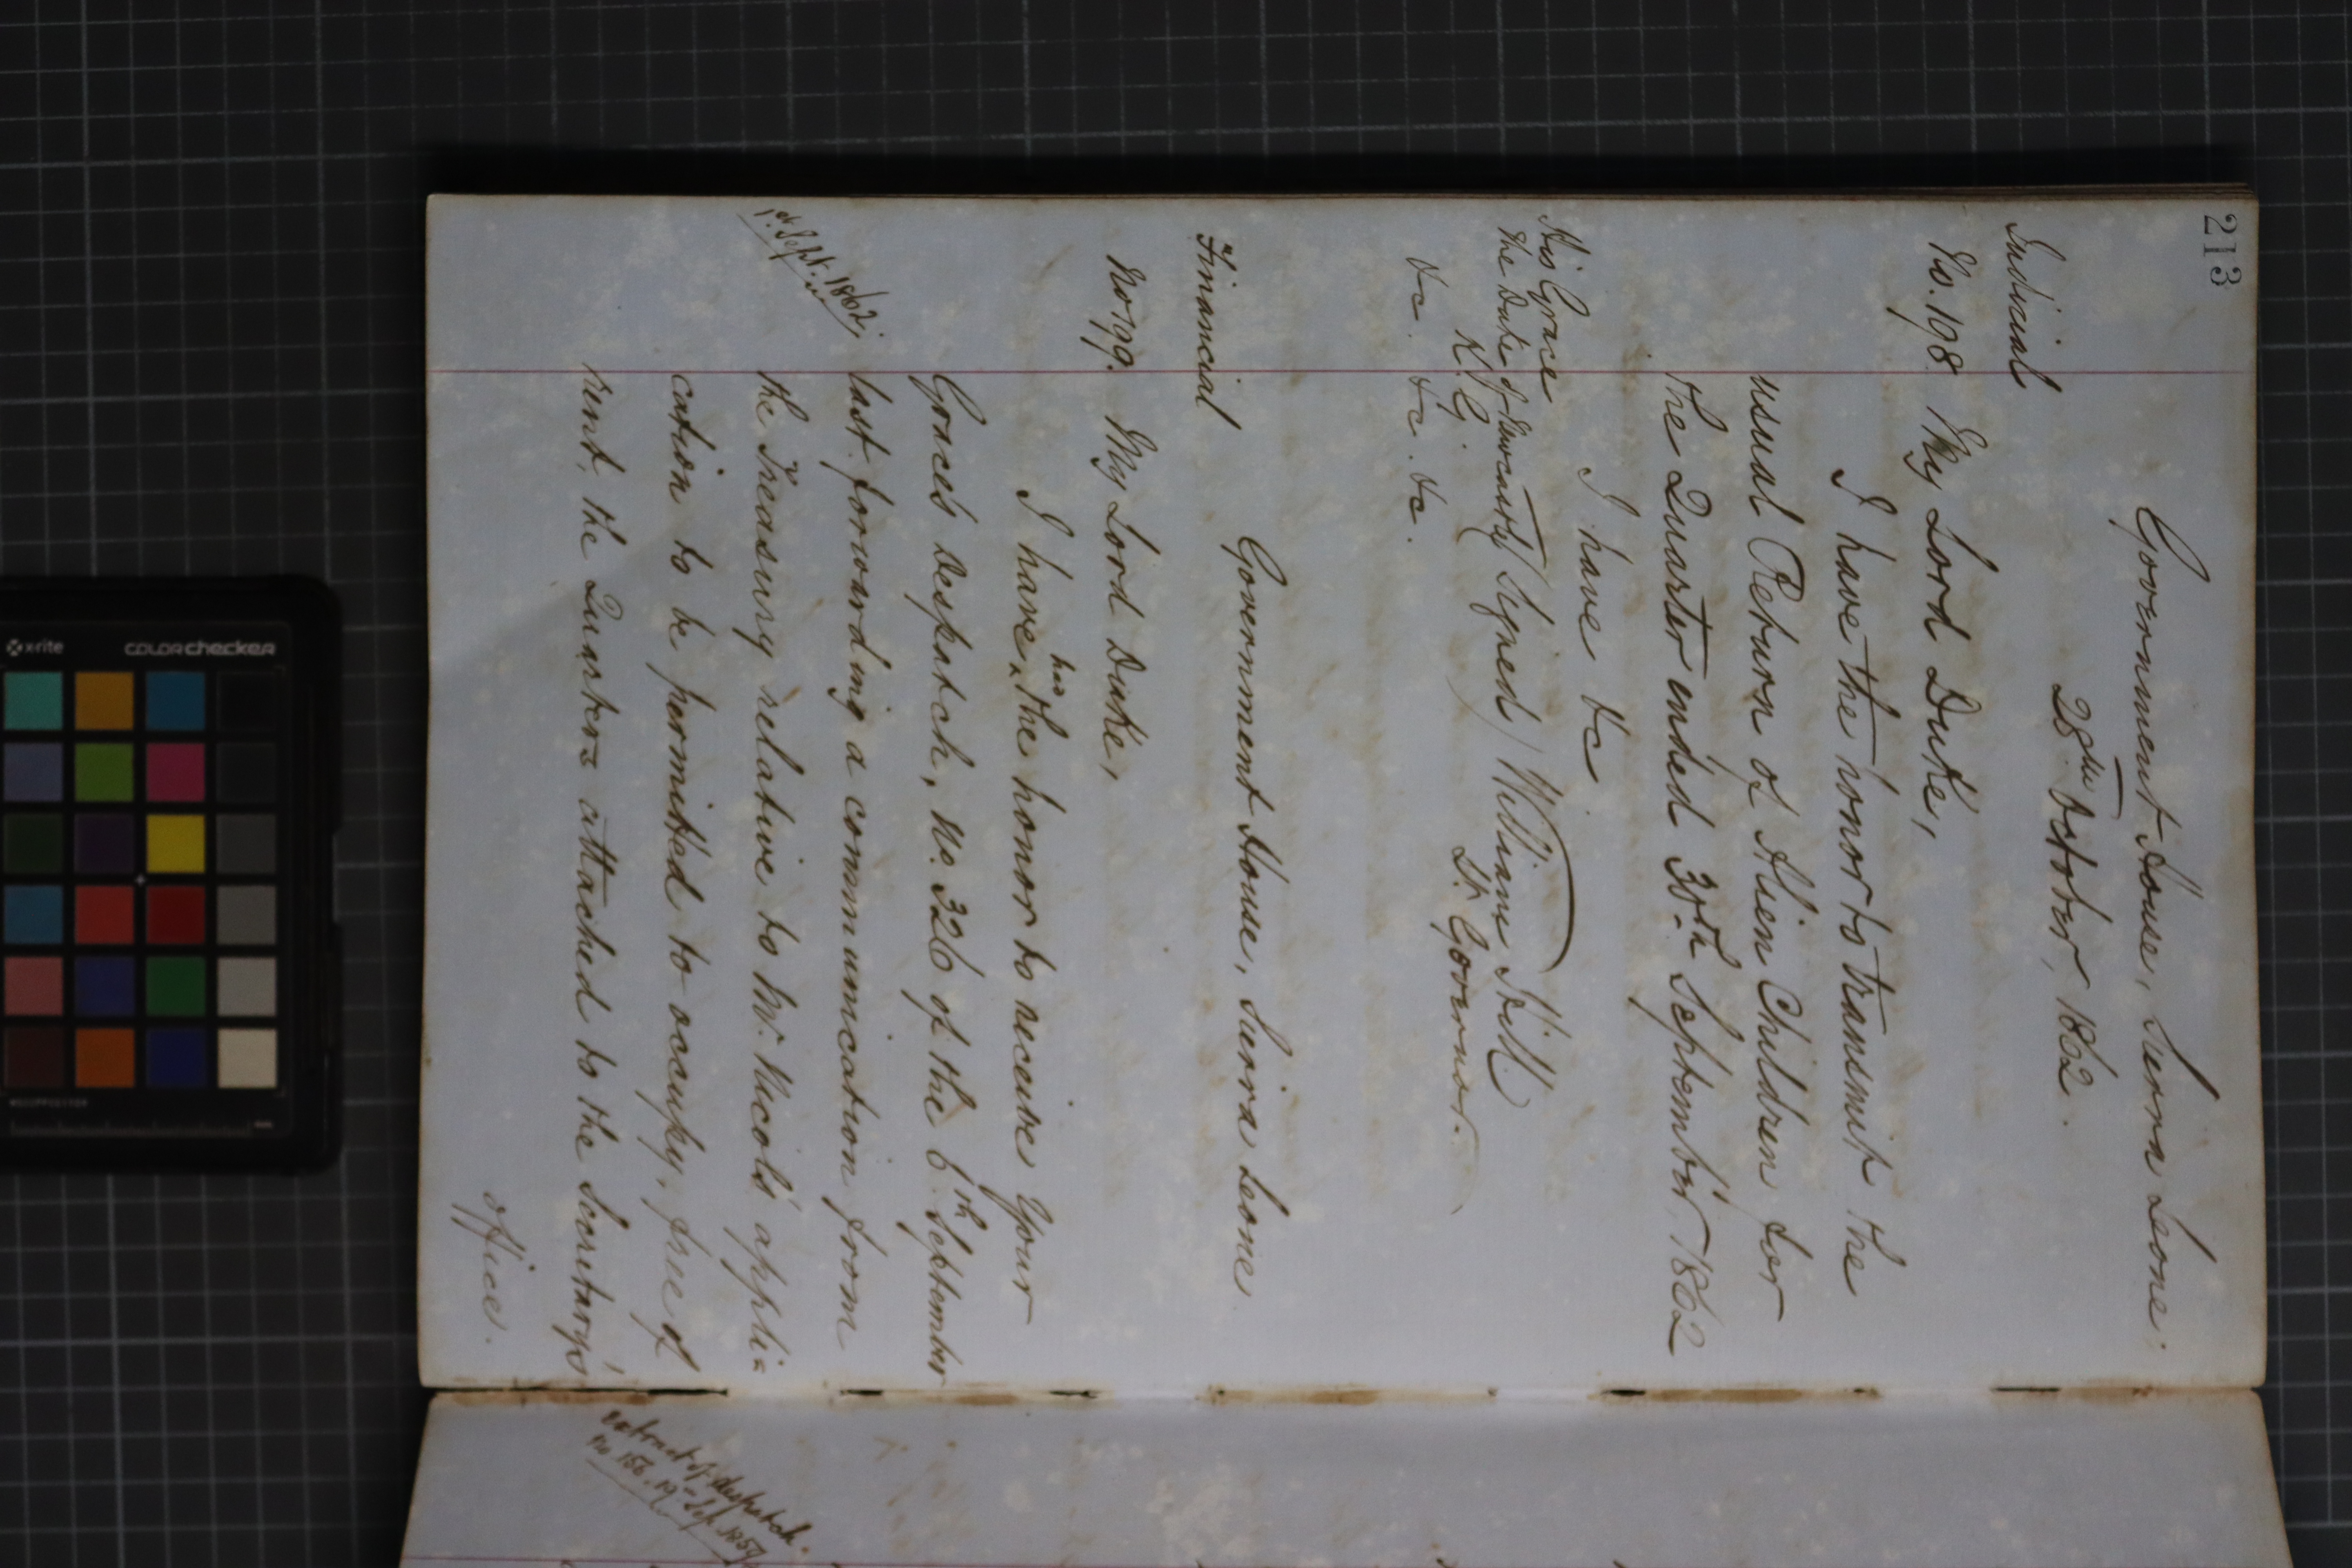 213
Government House, Sierra Leone,
28th October, 1862.
Judicial
No. 198 My Lord Duke,
I have the honor to transmit the
usual Return of Alien Children for
the Quarter ended 30th September 1862
I have &c
His Grace
The Duke of Newcastle (Signed) William Hill
K.G. Lt Governor.
&c. &c. &c.
Government House, Sierra Leone
Financial
No 199. My Lord Duke,
I have had the honor to receive Your
Grace's Despatch, No. 326 of the 6th September
last forwarding a communication from
1st Sept. 1862
the Treasury relative to Mr. Nicol's appli=
cation to be permitted to occupy, free of
rent, the Quarters attached to the Secretary's
office.
extract of despatch.
No 156. 19th Sep. 1859
x-rite
colorchecker